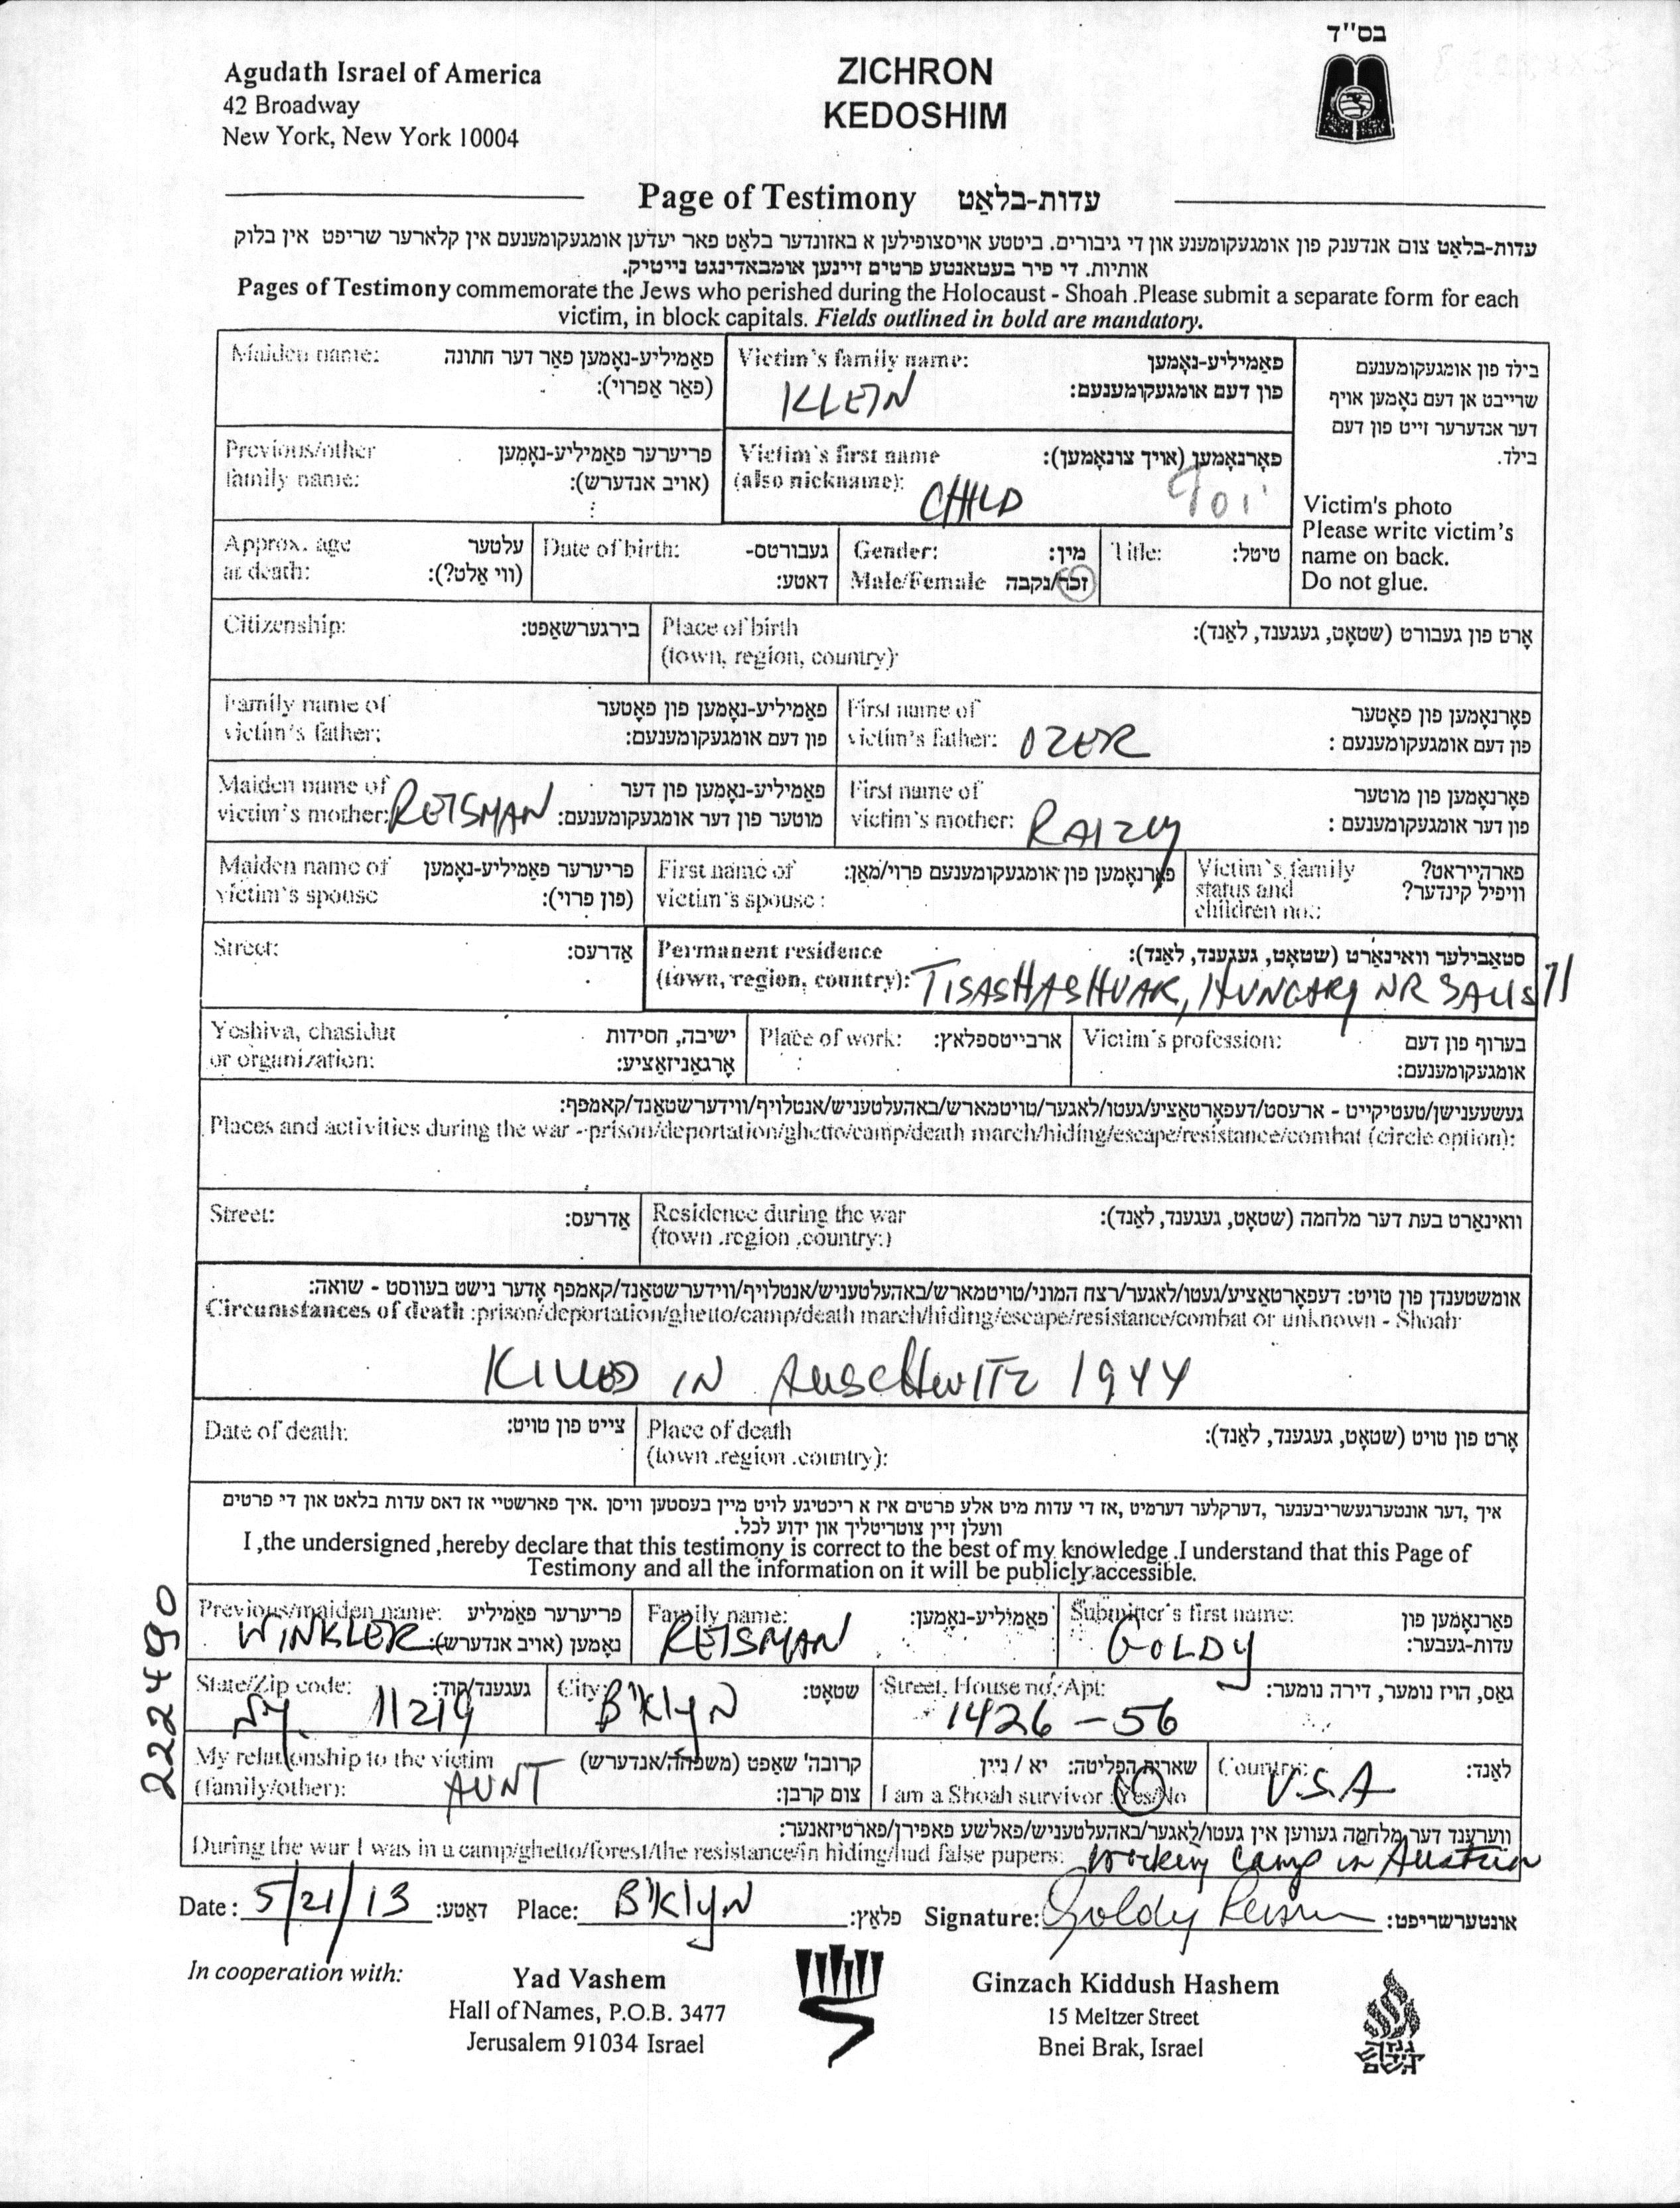 בס"ד
Agudath Israel of America
42 Broadway
New York, New York 10004
ZICHRON
KEDOSHIM
Page of Testimony עדות-בלאַט
עדות-בלאַט צום אנדענק פון אומגעקומענע און די גיבורים. ביטטע אויסצופילען א באזונדער בלאַט פאר יעדען אומגעקומענעם אין קלארער שריפט אין בלוק
אותיות. די פיר בעטאנטע פרטים זיינען אומבאדינגט נייטיק.
Pages of Testimony commemorate the Jews who perished during the Holocaust - Shoah .Please submit a separate form for each
victim, in block capitals. Fields outlined in bold are mandatory.
Maiden name: פאַמיליע-נאָמען פאַר דער חתונה
(פאַר אַפרוי):
Victim's family name: פאַמיליע-נאָמען
פון דעם אומגעקומענעם:
KLEIN
בילד פון אומגעקומענעם
שרייבט אן דעם נאָמען אויף
דער אנדערער זייט פון דעם
בילד.
Victim's photo
Please write victim's
name on back.
Do not glue.
Previous/other פריערער פאַמיליע-נאָמען
family name: (אויב אנדערש):
Victim's first name פאָרנאָמען (אויך צונאָמען):
(also nickname): CHILD
Approx. age עלטער
at death: (ווי אַלט?):
Date of birth: געבורטס-
דאטע:
Gender: מין:
Male/Female זכר/נקבה
Title: טיטל:
Citizenship: בירגערשאַפט:
Place of birth אָרט פון געבורט (שטאָט, געגענד, לאַנד):
(town, region, country):
Family name of פאַמיליע-נאָמען פון פאָטער
victim's father: פון דעם אומגעקומענעם:
First name of פאָרנאָמען פון פאָטער
victim's father: OZER פון דעם אומגעקומענעם :
Maiden name of פאַמיליע-נאָמען פון דער
victim's mother: REISMAN מוטער פון דער אומגעקומענעם:
First name of פאָרנאָמען פון מוטער
victim's mother: RAIZLY פון דער אומגעקומענעם :
Maiden name of פריערער פאַמיליע-נאָמען
victim's spouse (פון פרוי):
First name of פאָרנאָמען פון אומגעקומענעם פרוי/מאַן:
victim's spouse :
Victim's family פארהייראט?
status and וויפיל קינדער?
children no.:
Street: אַדרעס:
Permanent residence סטאַבילער וואוינאָרט (שטאָט, געגענד, לאַנד):
(town, region, country): TISASHASHVAR, HUNGARY NR
Yeshiva, chasidut ישיבה, חסידות
or organization: אָרגאַניזאַציע:
Place of work: ארבייטספלאץ:
Victim's profession: בערוף פון דעם
אומגעקומענעם:
געשעענישן/טעטיקייט - ארעסט/דעפאָרטאַציע/געטו/לאגער/טויטמארש/באהעלטעניש/אנטלויף/ווידערשטאַנד/קאמפף:
Places and activities during the war - prison/deportation/ghetto/camp/death march/hiding/escape/resistance/combat (circle option):
Street: אַדרעס:
Residence during the war וואוינאָרט בעת דער מלחמה (שטאָט, געגענד, לאַנד):
(town .region .country:)
אומשטענדן פון טויט: דעפאָרטאַציע/געטו/לאגער/רצח המוני/טויטמארש/באהעלטעניש/אנטלויף/ווידערשטאַנד/קאמפף אָדער נישט בעוווסט - שואה:
Circumstances of death :prison/deportation/ghetto/camp/death march/hiding/escape/resistance/combat or unknown - Shoah
KILLED IN AUSCHWITZ 1944
Date of death: צייט פון טויט:
Place of death אָרט פון טויט (שטאָט, געגענד, לאַנד):
(town .region .country):
איך ,דער אונטערגעשריבענער ,דערקלער דערמיט ,אז די עדות מיט אלע פרטים איז א ריכטיגע לויט מיין בעסטען וויסן .איך פארשטיי אז דאס עדות בלאט און די פרטים
וועלן זיין צוטריטליך און ידוע לכל.
I ,the undersigned ,hereby declare that this testimony is correct to the best of my knowledge .I understand that this Page of
Testimony and all the information on it will be publicly accessible.
Previous/maiden name: פריערער פאַמיליע
WINKLER נאָמען (אויב אנדערש):
Family name: פאַמיליע-נאָמען:
REISMAN
Submitter's first name: פאָרנאָמען פון
GOLDY עדות-געבער:
State/Zip code: געגענד/קוד:
NY. 11219
City: שטאָט:
B'KlyN
Street, House no, Apt: גאַס, הויז נומער, דירה נומער:
1426 - 56
My relationship to the victim קרובה' שאַפט (משפחה/אנדערש)
(family/other): AUNT צום קרבן:
שארית הפליטה: יא / ניין
I am a Shoah survivor :Yes/No
Country: לאַנד:
U.S.A
ווערענד דער מלחמה געווען אין געטו/לאגער/באהעלטעניש/פאלשע פאפירן/פארטיזאנער:
During the war I was in a camp/ghetto/forest/the resistance/in hiding/had false papers: Working Camp in Austria
Date : 5/21/13 דאטע: Place: B'KlyN פלאַץ: Signature: Goldy Reisman אונטערשריפט:
222490
In cooperation with:
Yad Vashem
Hall of Names, P.O.B. 3477
Jerusalem 91034 Israel
Ginzach Kiddush Hashem
15 Meltzer Street
Bnei Brak, Israel
גנזך
קידוש
השם